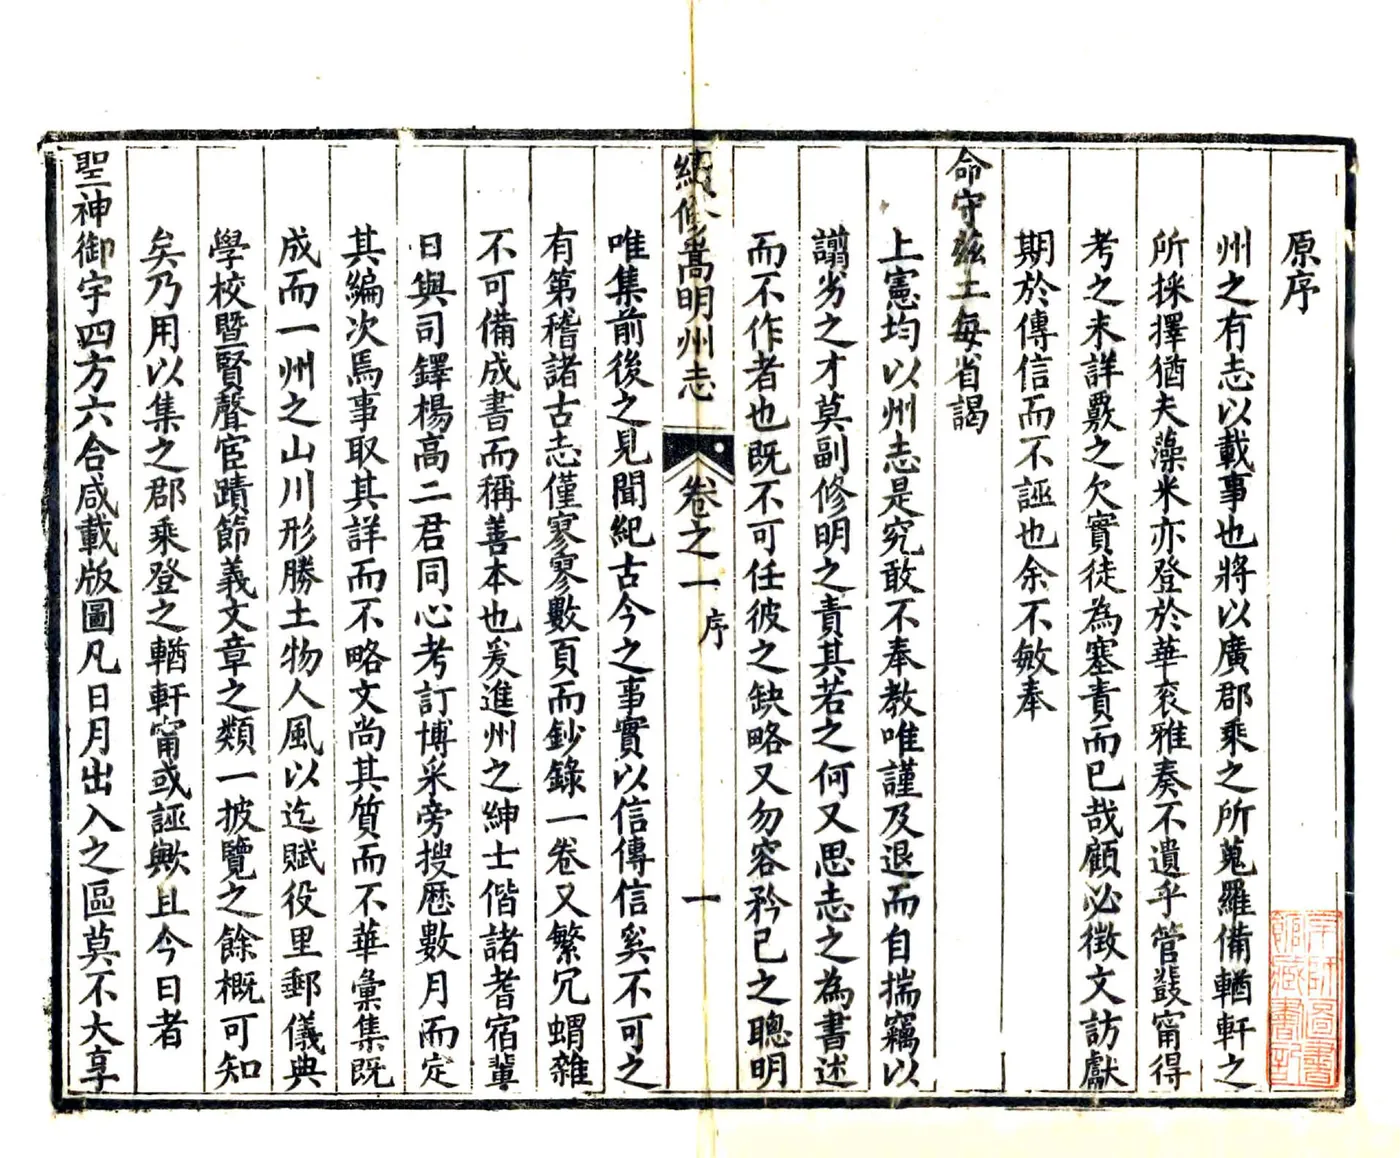 原序
州之有志以載事也將以廣郡乘之所蒐羅備輶軒之
所採擇猶夫藻米亦登於華衮雅奏不遺乎管鼗甯得
考之未詳覈之欠實徒為塞責而已哉顧必徵文訪獻
期於傳信而不誣也余不敏奉
命守兹土每省謁
上憲均以州志是究敢不奉教唯謹及退而自揣竊以
譾劣之才莫副修明之責其若之何又思志之為書述
而不作者也既不可任彼之缺略又勿容矜已之聰明
續修嵩明州志
卷之一
序
一
唯集前後之見聞紀古今之事實以信傳信奚不可之
有第稽諸古志僅寥寥數頁而鈔錄一卷又繁冗蝟雜
不可備成書而稱善本也爰進州之紳士偕諸耆宿輩
日與司鐸楊高二君同心考訂博采旁搜歷數月而定
其編次焉事取其詳而不略文尚其質而不華彙集既
成而一州之山川形勝土物人風以迄賦役里郵儀典
學校暨賢聲宦蹟節義文章之類一披覽之餘概可知
矣乃用以集之郡乘登之輶軒甯或誣歟且今日者
聖神御宇四方六合咸載版圖凡日月出入之區莫不大享